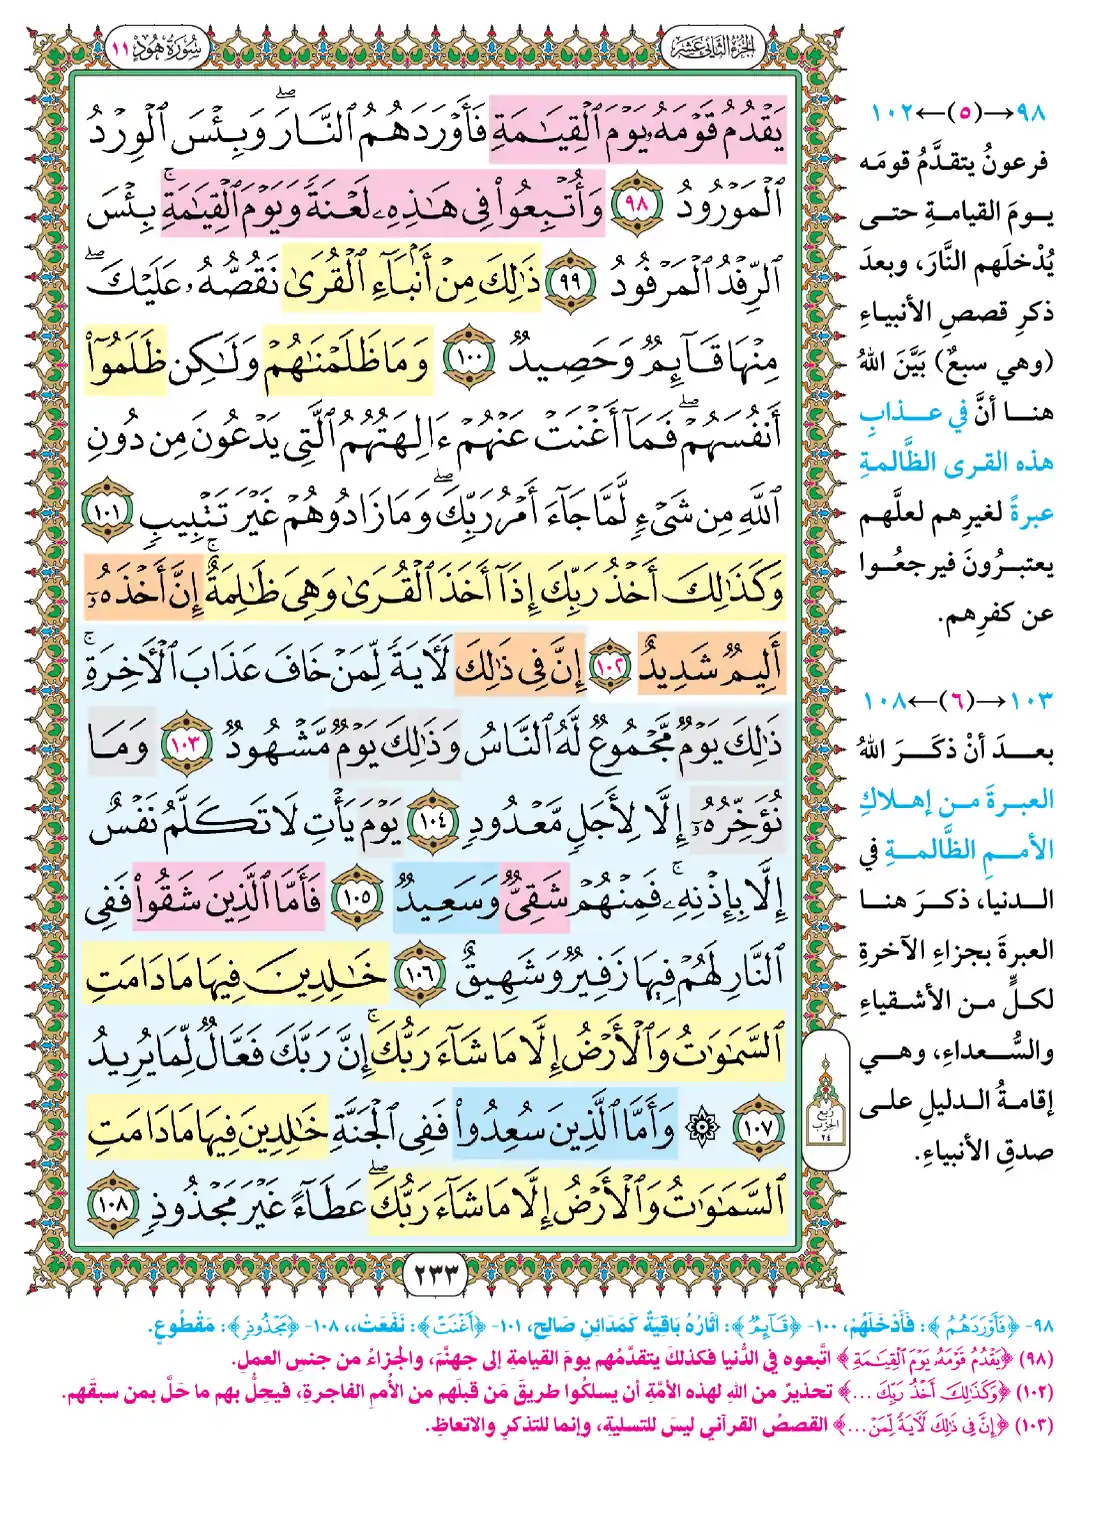 الجزء الثاني عشر
سورة هود ١١
يَقْدُمُ قَوْمَهُۥ يَوْمَ ٱلْقِيَٰمَةِ فَأَوْرَدَهُمُ ٱلنَّارَۖ وَبِئْسَ ٱلْوِرْدُ
ٱلْمَوْرُودُ ٩٨ وَأُتْبِعُوا۟ فِى هَٰذِهِۦ لَعْنَةً وَيَوْمَ ٱلْقِيَٰمَةِۚ بِئْسَ
ٱلرِّفْدُ ٱلْمَرْفُودُ ٩٩ ذَٰلِكَ مِنْ أَنۢبَآءِ ٱلْقُرَىٰ نَقُصُّهُۥ عَلَيْكَۖ
مِنْهَا قَآئِمٌ وَحَصِيدٌ ١٠٠ وَمَا ظَلَمْنَٰهُمْ وَلَٰكِن ظَلَمُوٓا۟
أَنفُسَهُمْۖ فَمَآ أَغْنَتْ عَنْهُمْ ءَالِهَتُهُمُ ٱلَّتِى يَدْعُونَ مِن دُونِ
ٱللَّهِ مِن شَىْءٍ لَّمَّا جَآءَ أَمْرُ رَبِّكَۖ وَمَا زَادُوهُمْ غَيْرَ تَتْبِيبٍ ١٠١
وَكَذَٰلِكَ أَخْذُ رَبِّكَ إِذَآ أَخَذَ ٱلْقُرَىٰ وَهِىَ ظَٰلِمَةٌۚ إِنَّ أَخْذَهُۥٓ
أَلِيمٌ شَدِيدٌ ١٠٢ إِنَّ فِى ذَٰلِكَ لَءَايَةً لِّمَنْ خَافَ عَذَابَ ٱلْءَاخِرَةِۚ
ذَٰلِكَ يَوْمٌ مَّجْمُوعٌ لَّهُ ٱلنَّاسُ وَذَٰلِكَ يَوْمٌ مَّشْهُودٌ ١٠٣ وَمَا
نُؤَخِّرُهُۥٓ إِلَّا لِأَجَلٍ مَّعْدُودٍ ١٠٤ يَوْمَ يَأْتِ لَا تَكَلَّمُ نَفْسٌ
إِلَّا بِإِذْنِهِۦۚ فَمِنْهُمْ شَقِىٌّ وَسَعِيدٌ ١٠٥ فَأَمَّا ٱلَّذِينَ شَقُوا۟ فَفِى
ٱلنَّارِ لَهُمْ فِيهَا زَفِيرٌ وَشَهِيقٌ ١٠٦ خَٰلِدِينَ فِيهَا مَا دَامَتِ
ٱلسَّمَٰوَٰتُ وَٱلْأَرْضُ إِلَّا مَا شَآءَ رَبُّكَۚ إِنَّ رَبَّكَ فَعَّالٌ لِّمَا يُرِيدُ
١٠٧ ۞ وَأَمَّا ٱلَّذِينَ سُعِدُوا۟ فَفِى ٱلْجَنَّةِ خَٰلِدِينَ فِيهَا مَا دَامَتِ
ٱلسَّمَٰوَٰتُ وَٱلْأَرْضُ إِلَّا مَا شَآءَ رَبُّكَۖ عَطَآءً غَيْرَ مَجْذُوذٍ ١٠٨
٢٣٣
٩٨→(٥)←١٠٢
فرعونُ يتقدَّمُ قومَه
يومَ القيامةِ حتى
يُدْخلَهم النَّارَ، وبعدَ
ذكرِ قصصِ الأنبياءِ
(وهي سبعٌ) بَيَّنَ اللهُ
هنا أنَّ في عذابِ
هذه القرى الظَّالمةِ
عبرةً لغيرِهم لعلَّهم
يعتبرُونَ فيرجعُوا
عن كفرِهم.
١٠٣→(٦)←١٠٨
بعدَ أنْ ذكَرَ اللهُ
العبرةَ من إهلاكِ
الأممِ الظَّالمةِ في
الدنيا، ذكرَ هنا
العبرةَ بجزاءِ الآخرةِ
لكلٍّ من الأشقياءِ
والسُّعداءِ، وهي
إقامةُ الدليلِ على
صدقِ الأنبياءِ.
ربع
الحزب
٢٤
٩٨- ﴿فَأَوْرَدَهُمُ﴾: فَأَدْخَلَهُمْ، ١٠٠- ﴿قَآئِمٌ﴾: آثَارُهُ بَاقِيَةٌ كَمَدَائِنِ صَالِحٍ، ١٠١- ﴿أَغْنَتْ﴾: نَفَعَتْ،، ١٠٨- ﴿مَجْذُوذٍ﴾: مَقْطُوعٍ.
(٩٨) ﴿يَقْدُمُ قَوْمَهُۥ يَوْمَ ٱلْقِيَٰمَةِ﴾ اتَّبعوه في الدُّنيا فكذلكَ يتقدَّمُهم يومَ القيامةِ إلى جهنَّمَ، والجزاءُ من جنسِ العملِ.
(١٠٢) ﴿وَكَذَٰلِكَ أَخْذُ رَبِّكَ ...﴾ تحذيرٌ من اللهِ لهذه الأمَّةِ أن يسلكُوا طريقَ مَن قبلَهم من الأُممِ الفاجرةِ، فيحِلُّ بهم ما حَلَّ بمن سبقَهم.
(١٠٣) ﴿إِنَّ فِى ذَٰلِكَ لَءَايَةً لِّمَنْ ...﴾ القصصُ القرآني ليسَ للتسليةِ، وإنما للتذكرِ والاتعاظِ.